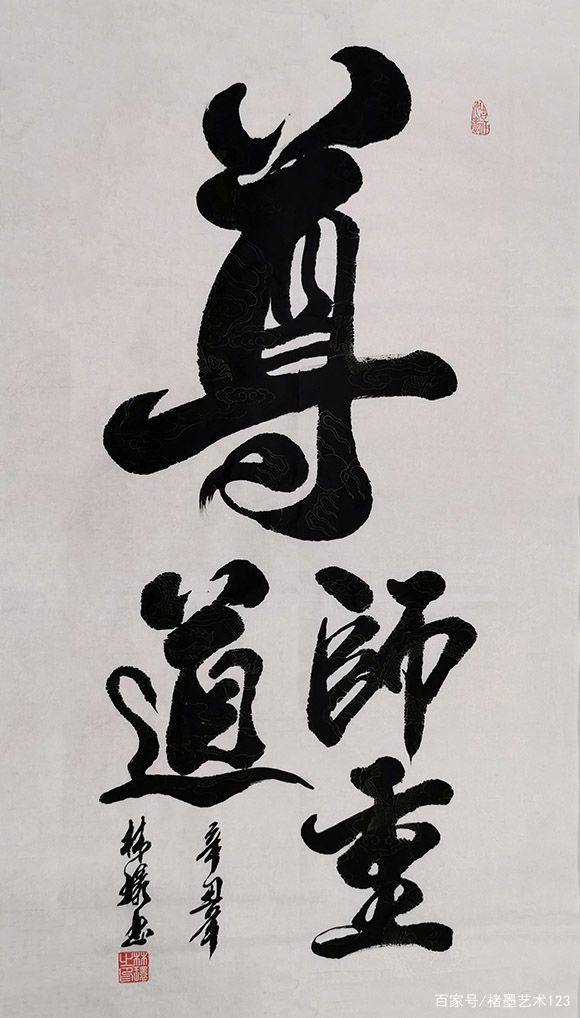 尊
師重
道
辛丑年
林 书
百家号/楮墨艺术123